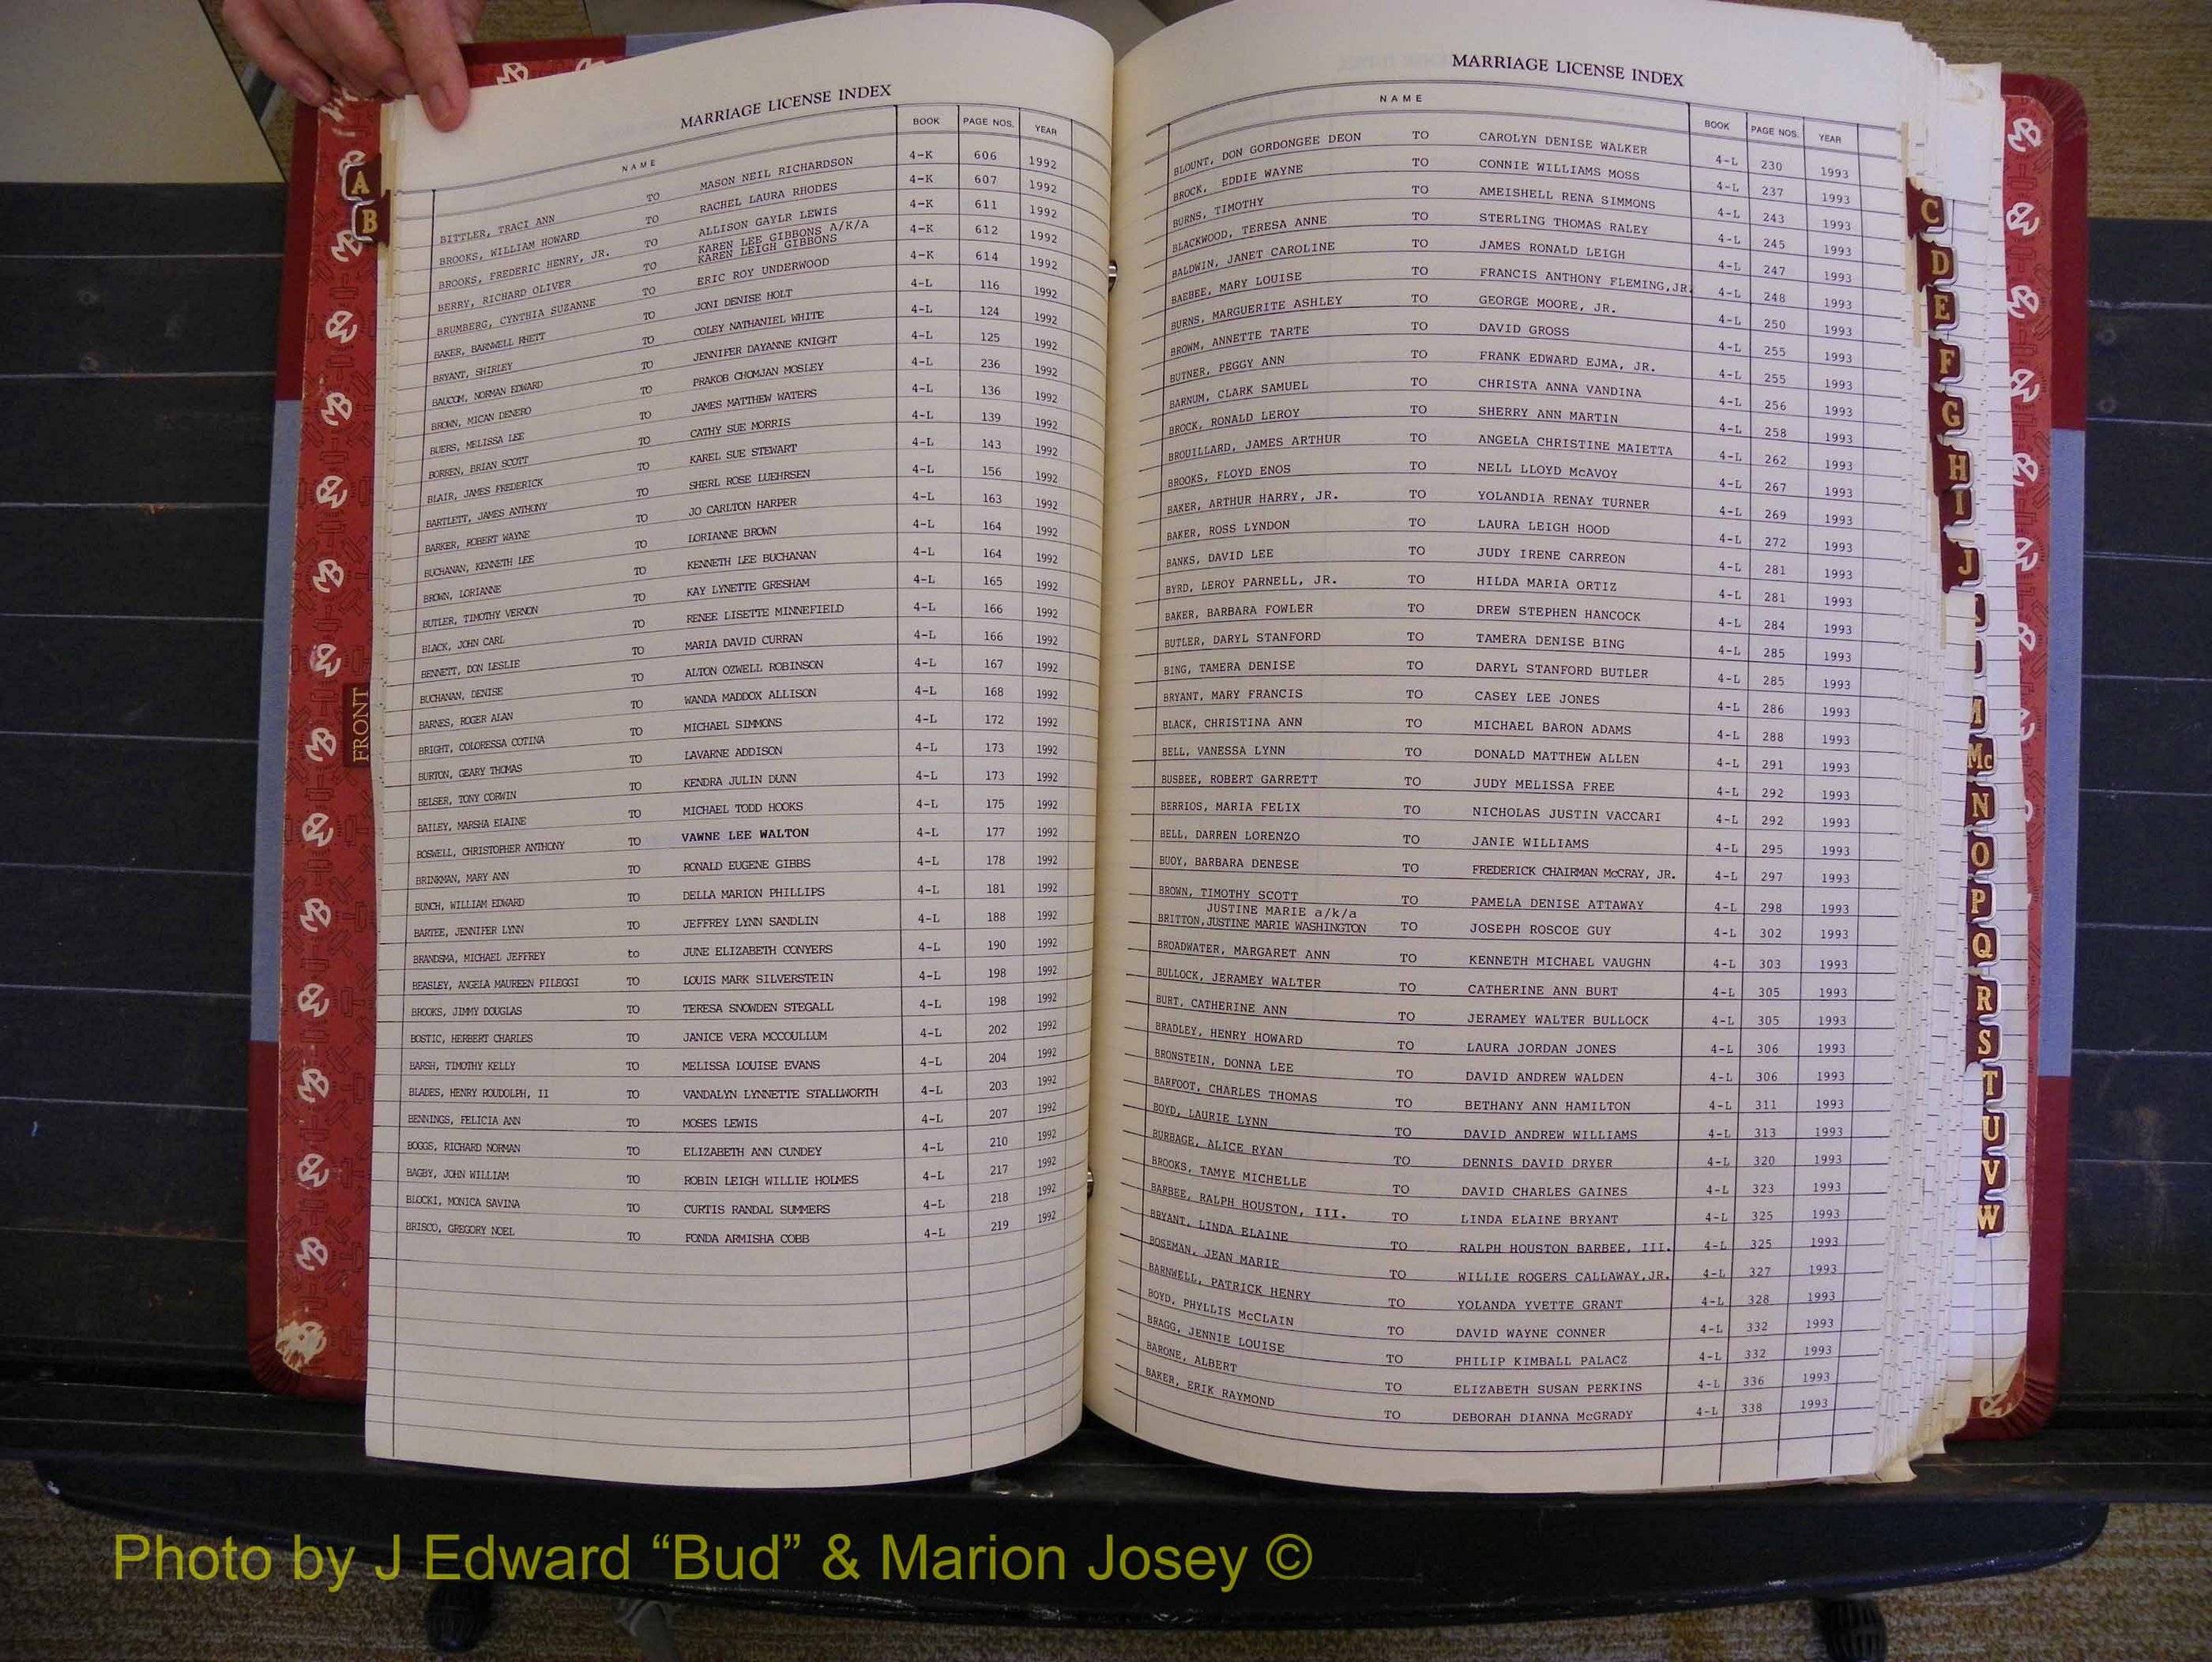 MARRIAGE LICENSE INDEX
NAME BOOK PAGE NOS. YEAR
BITTLER, TRACI ANN TO MASON NEIL RICHARDSON 4-K 606 1992
BROOKS, WILLIAM HOWARD TO RACHEL LAURA RHODES 4-K 607 1992
BROOKS, FREDERIC HENRY, JR. TO ALLISON GAYLR LEWIS 4-K 611 1992
BERRY, RICHARD OLIVER TO KAREN LEE GIBBONS A/K/A KAREN LEIGH GIBBONS 4-K 612 1992
BRUMBERG, CYNTHIA SUZANNE TO ERIC ROY UNDERWOOD 4-K 614 1992
BAKER, BARNWELL RHETT TO JONI DENISE HOLT 4-L 116 1992
BRYANT, SHIRLEY TO COLEY NATHANIEL WHITE 4-L 124 1992
BAUCOM, NORMAN EDWARD TO JENNIFER DAYANNE KNIGHT 4-L 125 1992
BROWN, MICAN DENERO TO PRAKOB CHOMJAN MOSLEY 4-L 236 1992
BUERS, MELISSA LEE TO JAMES MATTHEW WATERS 4-L 136 1992
BORREN, BRIAN SCOTT TO CATHY SUE MORRIS 4-L 139 1992
BLAIR, JAMES FREDERICK TO KAREL SUE STEWART 4-L 143 1992
BARTLETT, JAMES ANTHONY TO SHERL ROSE LUEHRSEN 4-L 156 1992
BARKER, ROBERT WAYNE TO JO CARLTON HARPER 4-L 163 1992
BUCHANAN, KENNETH LEE TO LORIANNE BROWN 4-L 164 1992
BROWN, LORIANNE TO KENNETH LEE BUCHANAN 4-L 164 1992
BUTLER, TIMOTHY VERNON TO KAY LYNETTE GRESHAM 4-L 165 1992
BLACK, JOHN CARL TO RENEE LISETTE MINNEFIELD 4-L 166 1992
BENNETT, DON LESLIE TO MARIA DAVID CURRAN 4-L 166 1992
BUCHANAN, DENISE TO ALTON OZWELL ROBINSON 4-L 167 1992
BARNES, ROGER ALAN TO WANDA MADDOX ALLISON 4-L 168 1992
BRIGHT, COLORESSA COTINA TO MICHAEL SIMMONS 4-L 172 1992
BURTON, GEARY THOMAS TO LAVARNE ADDISON 4-L 173 1992
BELSER, TONY CORWIN TO KENDRA JULIN DUNN 4-L 173 1992
BAILEY, MARSHA ELAINE TO MICHAEL TODD HOOKS 4-L 175 1992
BOSWELL, CHRISTOPHER ANTHONY TO VAWNE LEE WALTON 4-L 177 1992
BRINKMAN, MARY ANN TO RONALD EUGENE GIBBS 4-L 178 1992
BUNCH, WILLIAM EDWARD TO DELLA MARION PHILLIPS 4-L 181 1992
BARTEE, JENNIFER LYNN TO JEFFREY LYNN SANDLIN 4-L 188 1992
BRANDSMA, MICHAEL JEFFREY to JUNE ELIZABETH CONYERS 4-L 190 1992
BEASLEY, ANGELA MAUREEN PILEGGI TO LOUIS MARK SILVERSTEIN 4-L 198 1992
BROOKS, JIMMY DOUGLAS TO TERESA SNOWDEN STEGALL 4-L 198 1992
BOSTIC, HERBERT CHARLES TO JANICE VERA MCCOULLUM 4-L 202 1992
BARSH, TIMOTHY KELLY TO MELISSA LOUISE EVANS 4-L 204 1992
BLADES, HENRY ROUDOLPH, II TO VANDALYN LYNNETTE STALLWORTH 4-L 203 1992
BENNINGS, FELICIA ANN TO MOSES LEWIS 4-L 207 1992
BOGGS, RICHARD NORMAN TO ELIZABETH ANN CUNDEY 4-L 210 1992
BAGBY, JOHN WILLIAM TO ROBIN LEIGH WILLIE HOLMES 4-L 217 1992
BLOCKI, MONICA SAVINA TO CURTIS RANDAL SUMMERS 4-L 218 1992
BRISCO, GREGORY NOEL TO FONDA ARMISHA COBB 4-L 219 1992
MARRIAGE LICENSE INDEX
NAME BOOK PAGE NOS. YEAR
BLOUNT, DON GORDONGEE DEON TO CAROLYN DENISE WALKER 4-L 230 1993
BROCK, EDDIE WAYNE TO CONNIE WILLIAMS MOSS 4-L 237 1993
BURNS, TIMOTHY TO AMEISHELL RENA SIMMONS 4-L 243 1993
BLACKWOOD, TERESA ANNE TO STERLING THOMAS RALEY 4-L 245 1993
BALDWIN, JANET CAROLINE TO JAMES RONALD LEIGH 4-L 247 1993
BAEBEE, MARY LOUISE TO FRANCIS ANTHONY FLEMING,JR. 4-L 248 1993
BURNS, MARGUERITE ASHLEY TO GEORGE MOORE, JR. 4-L 250 1993
BROWM, ANNETTE TARTE TO DAVID GROSS 4-L 255 1993
BUTNER, PEGGY ANN TO FRANK EDWARD EJMA, JR. 4-L 255 1993
BARNUM, CLARK SAMUEL TO CHRISTA ANNA VANDINA 4-L 256 1993
BROCK, RONALD LEROY TO SHERRY ANN MARTIN 4-L 258 1993
BROUILLARD, JAMES ARTHUR TO ANGELA CHRISTINE MAIETTA 4-L 262 1993
BROOKS, FLOYD ENOS TO NELL LLOYD McAVOY 4-L 267 1993
BAKER, ARTHUR HARRY, JR. TO YOLANDIA RENAY TURNER 4-L 269 1993
BAKER, ROSS LYNDON TO LAURA LEIGH HOOD 4-L 272 1993
BANKS, DAVID LEE TO JUDY IRENE CARREON 4-L 281 1993
BYRD, LEROY PARNELL, JR. TO HILDA MARIA ORTIZ 4-L 281 1993
BAKER, BARBARA FOWLER TO DREW STEPHEN HANCOCK 4-L 284 1993
BUTLER, DARYL STANFORD TO TAMERA DENISE BING 4-L 285 1993
BING, TAMERA DENISE TO DARYL STANFORD BUTLER 4-L 285 1993
BRYANT, MARY FRANCIS TO CASEY LEE JONES 4-L 286 1993
BLACK, CHRISTINA ANN TO MICHAEL BARON ADAMS 4-L 288 1993
BELL, VANESSA LYNN TO DONALD MATTHEW ALLEN 4-L 291 1993
BUSBEE, ROBERT GARRETT TO JUDY MELISSA FREE 4-L 292 1993
BERRIOS, MARIA FELIX TO NICHOLAS JUSTIN VACCARI 4-L 292 1993
BELL, DARREN LORENZO TO JANIE WILLIAMS 4-L 295 1993
BUOY, BARBARA DENESE TO FREDERICK CHAIRMAN McCRAY, JR. 4-L 297 1993
BROWN, TIMOTHY SCOTT TO PAMELA DENISE ATTAWAY 4-L 298 1993
JUSTINE MARIE a/k/a
BRITTON,JUSTINE MARIE WASHINGTON TO JOSEPH ROSCOE GUY 4-L 302 1993
BROADWATER, MARGARET ANN TO KENNETH MICHAEL VAUGHN 4-L 303 1993
BULLOCK, JERAMEY WALTER TO CATHERINE ANN BURT 4-L 305 1993
BURT, CATHERINE ANN TO JERAMEY WALTER BULLOCK 4-L 305 1993
BRADLEY, HENRY HOWARD TO LAURA JORDAN JONES 4-L 306 1993
BRONSTEIN, DONNA LEE TO DAVID ANDREW WALDEN 4-L 306 1993
BARFOOT, CHARLES THOMAS TO BETHANY ANN HAMILTON 4-L 311 1993
BOYD, LAURIE LYNN TO DAVID ANDREW WILLIAMS 4-L 313 1993
BURBAGE, ALICE RYAN TO DENNIS DAVID DRYER 4-L 320 1993
BROOKS, TAMYE MICHELLE TO DAVID CHARLES GAINES 4-L 323 1993
BARBEE, RALPH HOUSTON, III. TO LINDA ELAINE BRYANT 4-L 325 1993
BRYANT, LINDA ELAINE TO RALPH HOUSTON BARBEE, III. 4-L 325 1993
BOSEMAN, JEAN MARIE TO WILLIE ROGERS CALLAWAY,JR. 4-L 327 1993
BARNWELL, PATRICK HENRY TO YOLANDA YVETTE GRANT 4-L 328 1993
BOYD, PHYLLIS McCLAIN TO DAVID WAYNE CONNER 4-L 332 1993
BRAGG, JENNIE LOUISE TO PHILIP KIMBALL PALACZ 4-L 332 1993
BARONE, ALBERT TO ELIZABETH SUSAN PERKINS 4-L 336 1993
BAKER, ERIK RAYMOND TO DEBORAH DIANNA McGRADY 4-L 338 1993
A
B
FRONT
C
D
E
F
G
H
I
J
M
Mc
N
O
P
Q
R
S
T
U
V
W
Photo by J Edward “Bud” & Marion Josey ©